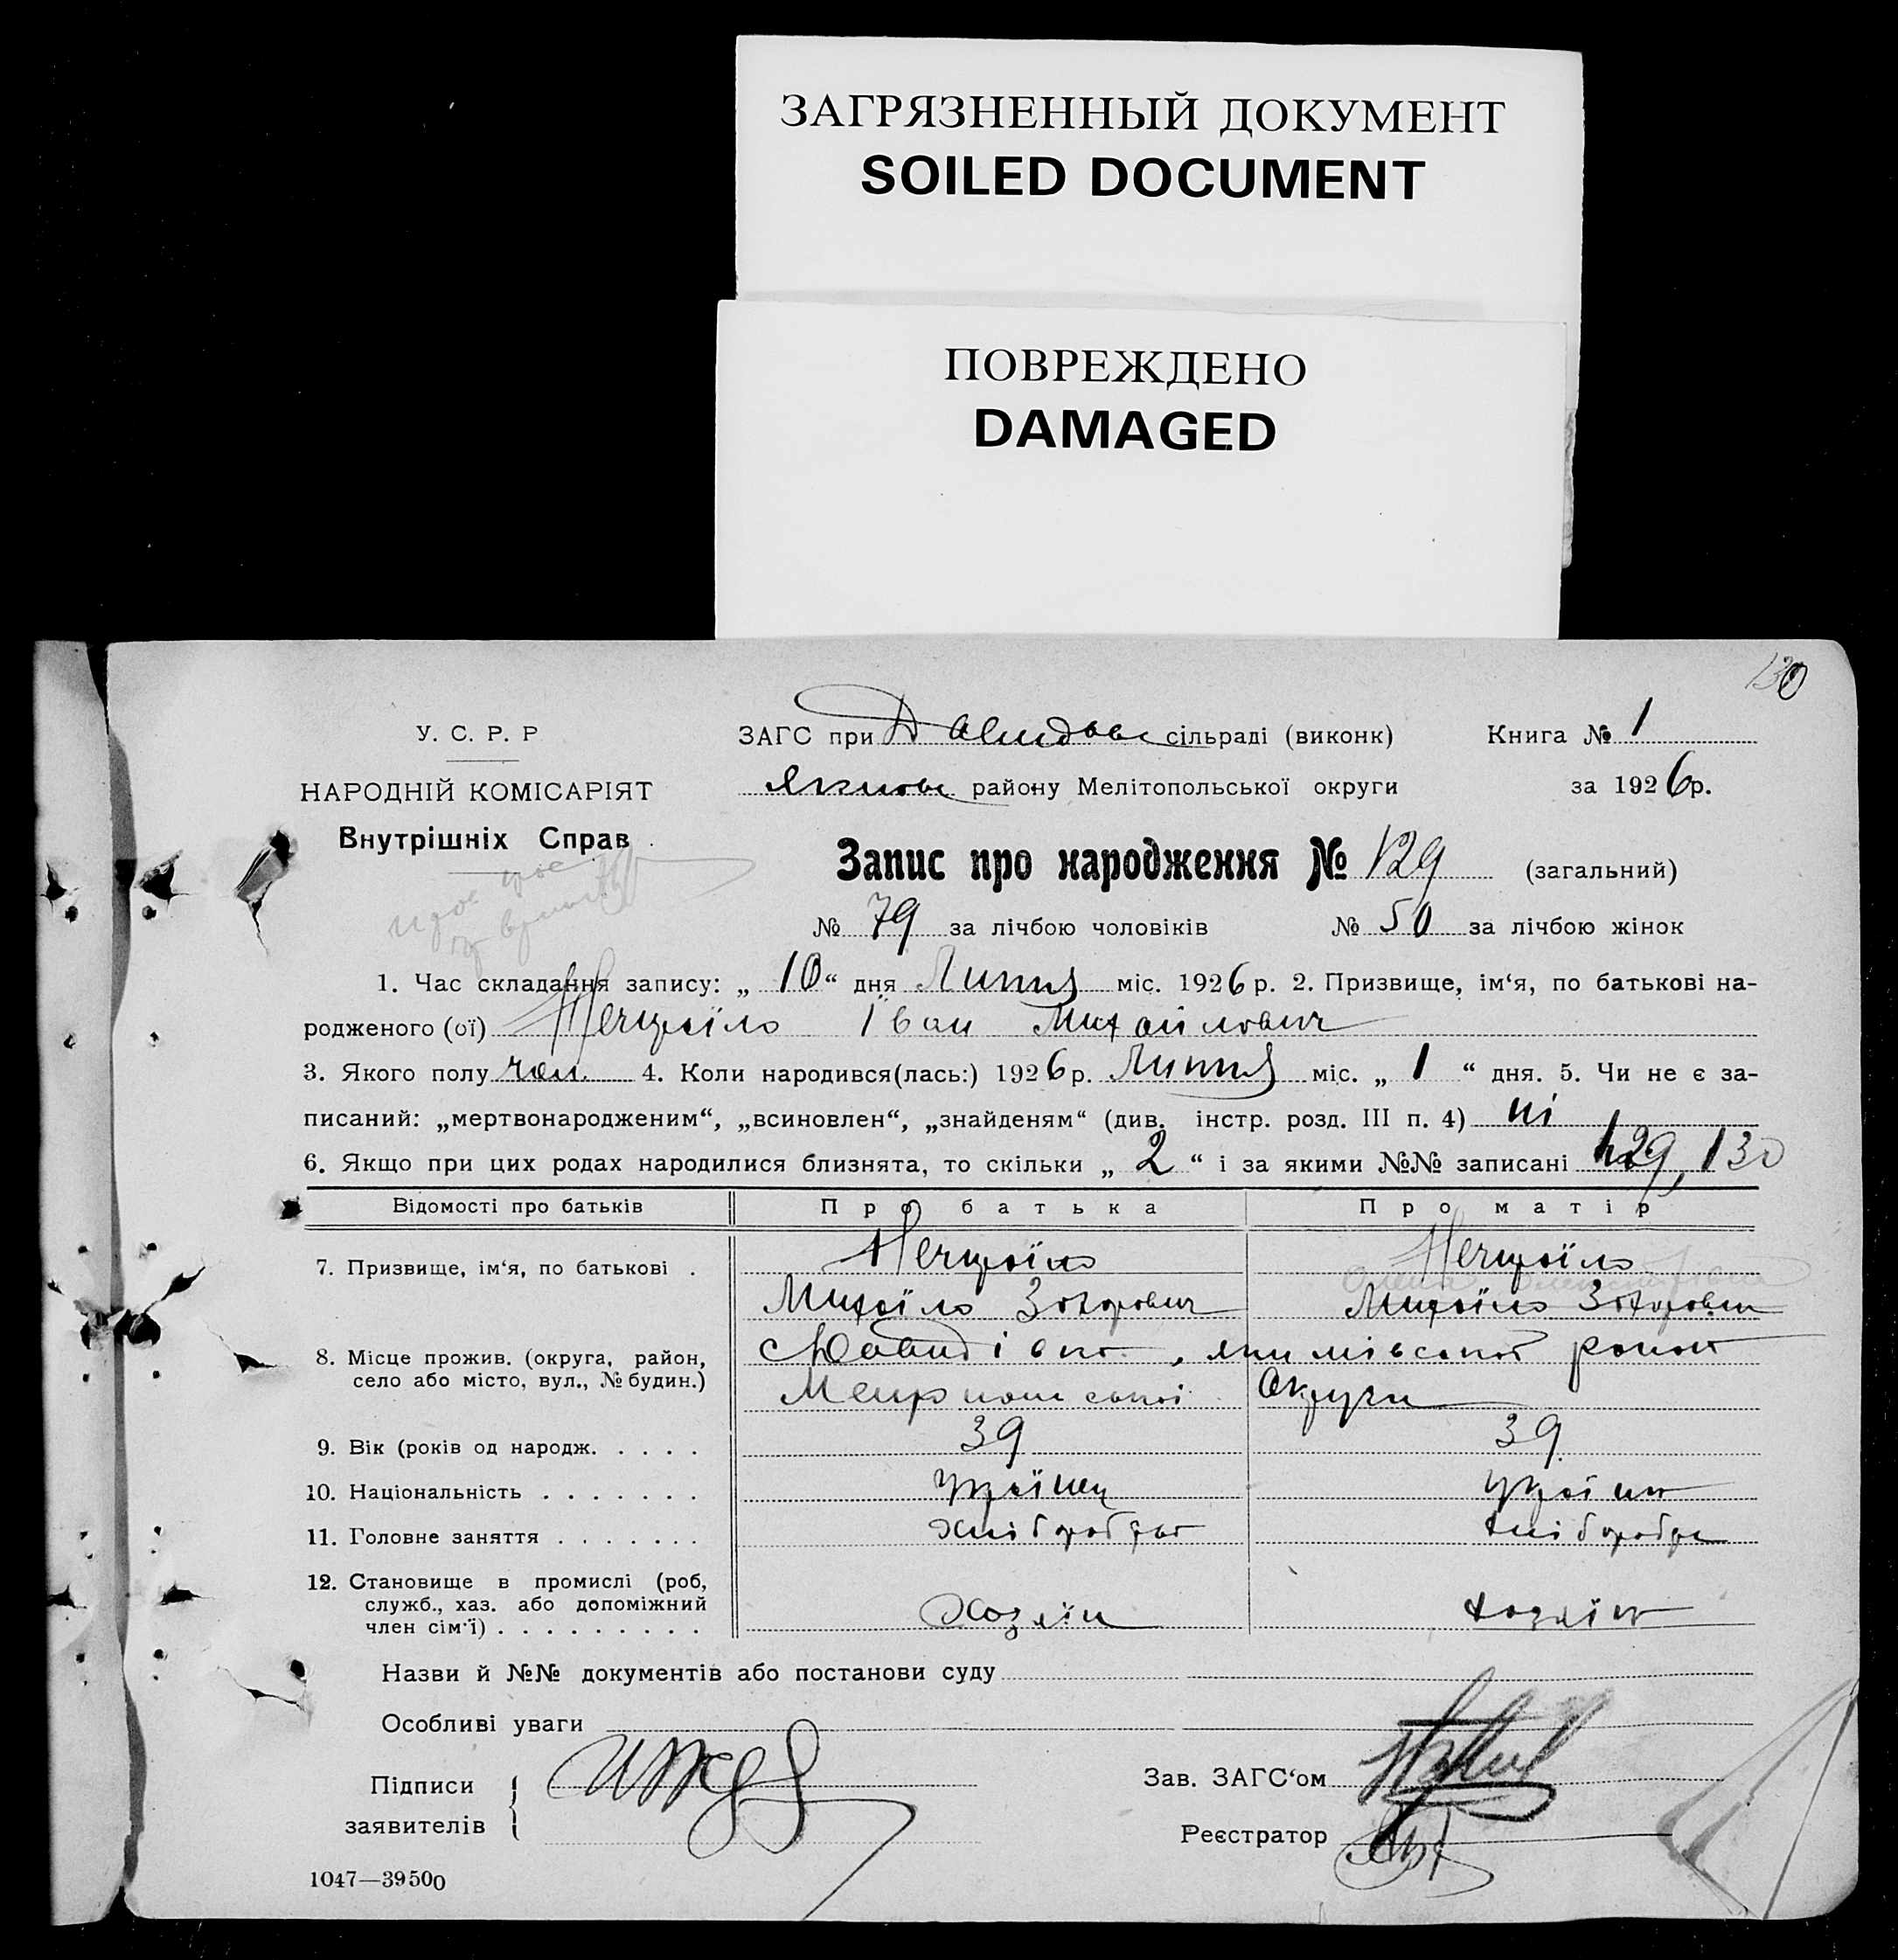 ЗАГРЯЗНЕННЫЙ ДОКУМЕНТ
SOILED DOCUMENT
ПОВРЕЖДЕНО
DAMAGED
130
У. С. Р. Р
ЗАГС при Давидовс сільраді (виконк)
Книга № 1
НАРОДНІЙ КОМІСАРІЯТ
Якимов району Мелітопольської округи
за 1926 р.
Внутрішніх Справ
Запис про народження № 129 (загальний)
№ 79 за лічбою чоловіків № 50 за лічбою жінок
1. Час складання запису: „ 10 “ дня Липня міс. 1926 р. 2. Призвище, ім‘я, по батькові на-
родженого (ої) Нечипоїло Іван Михайлович
3. Якого полу чол. 4. Коли народився(лась:) 1926 р. Липня міс. „ 1 “ дня. 5. Чи не є за-
писаний: „мертвонародженим“, „всиновлен“, „знайденям“ (див. інстр. розд. III п. 4) ні
6. Якщо при цих родах народилися близнята, то скільки „ 2 “ і за якими №№ записані 129, 130
Відомості про батьків
Про батька
Про матір
7. Призвище, ім‘я, по батькові .
Михаїло Захарович
Михаїло Захарович
8. Місце прожив. (округа, район,
село або місто, вул., № будин.)
Давидівка, якимівської район
округи
9. Вік (років од народж. . . . .
39
39
10. Національність . . . . . . .
Україн
11. Головне заняття . . . . . . .
хлібороб
хлібороб
12. Становище в промислі (роб,
служб., хаз. або допоміжний
член сім‘ї) . . . . . . . . .
Хозяїн
хозяїн
Назви й №№ документів або постанови суду
Особливі уваги
Підписи
заявителів
Зав. ЗАГС‘ом
Реєстратор
1047—39500